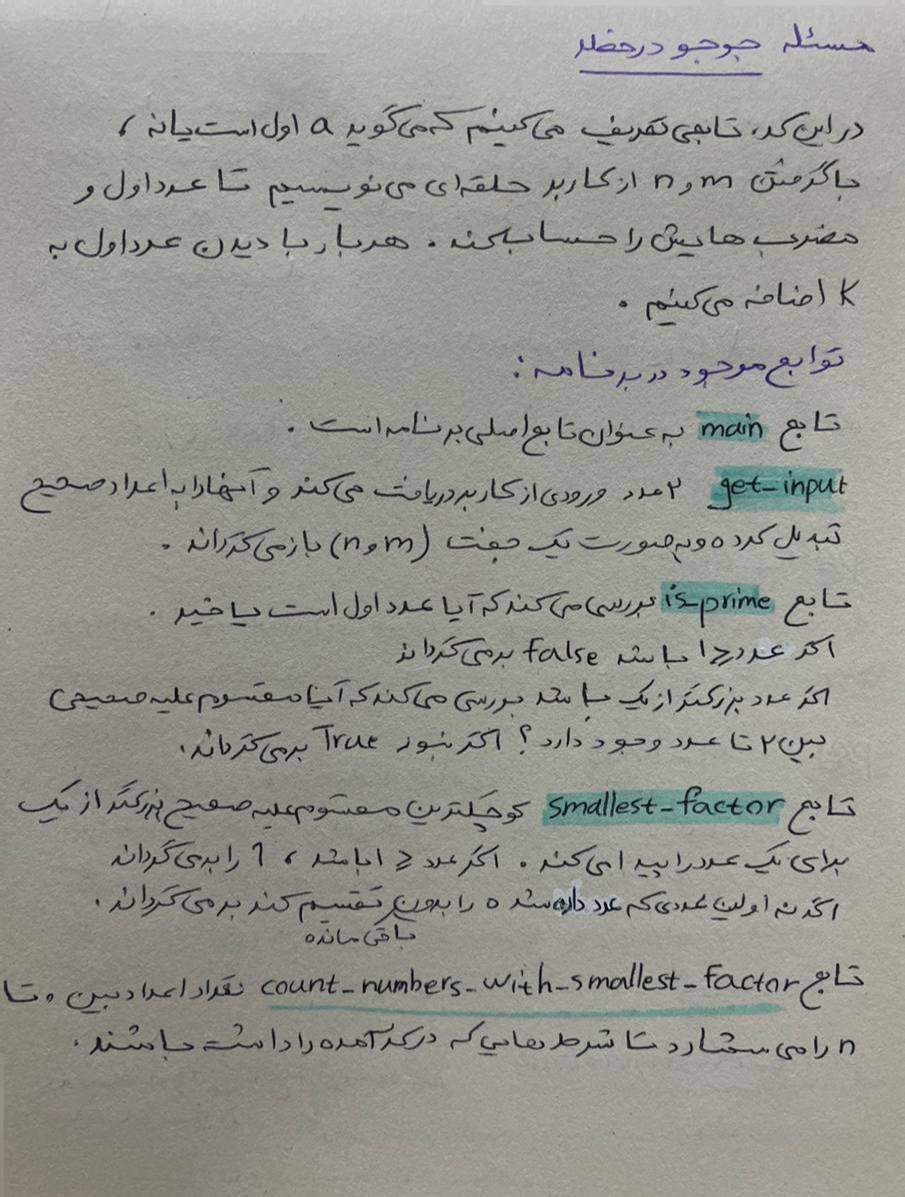 مسئله جوجو در حفله
در این کد، تابعی تعریف می‌کنیم که می‌گوید a اول است یا نه ،
با گرفتن m و n از کاربر حلقه‌ای می‌نویسیم تا عدد اول و
مضرب هایش را حساب کند . هر بار با دیدن عدد اول به
K اضافه می‌کنیم .
توابع موجود در برنامه :
تابع main به عنوان تابع اصلی برنامه است .
get-input ۲ عدد ورودی از کاربر دریافت می‌کند و آنها را به اعداد صحیح
تبدیل کرده و به صورت یک جفت (m و n) باز می‌گرداند .
تابع is-prime بررسی می‌کند که آیا عدد اول است یا خیر .
اگر عدد ≤ 1 باشد false برمی‌گرداند
اگر عدد بزرگتر از یک باشد بررسی می‌کند که آیا مقسوم علیه صحیحی
بین ۲ تا عدد وجود دارد ؟ اگر نبود True برمی‌گرداند .
تابع smallest-factor کوچکترین مقسوم علیه صحیح بزرگتر از یک
برای یک عدد را پیدا می‌کند . اگر عدد ≤ 1 باشد ، 1 را برمی‌گرداند
اگر نه اولین عددی که عدد داده شده را بدون باقی مانده تقسیم کند برمی‌گرداند .
تابع count-numbers-with-smallest-factor تعداد اعداد بین ۰ تا
n را می شمارد تا شرط هایی که در کد آمده را داشته باشند .